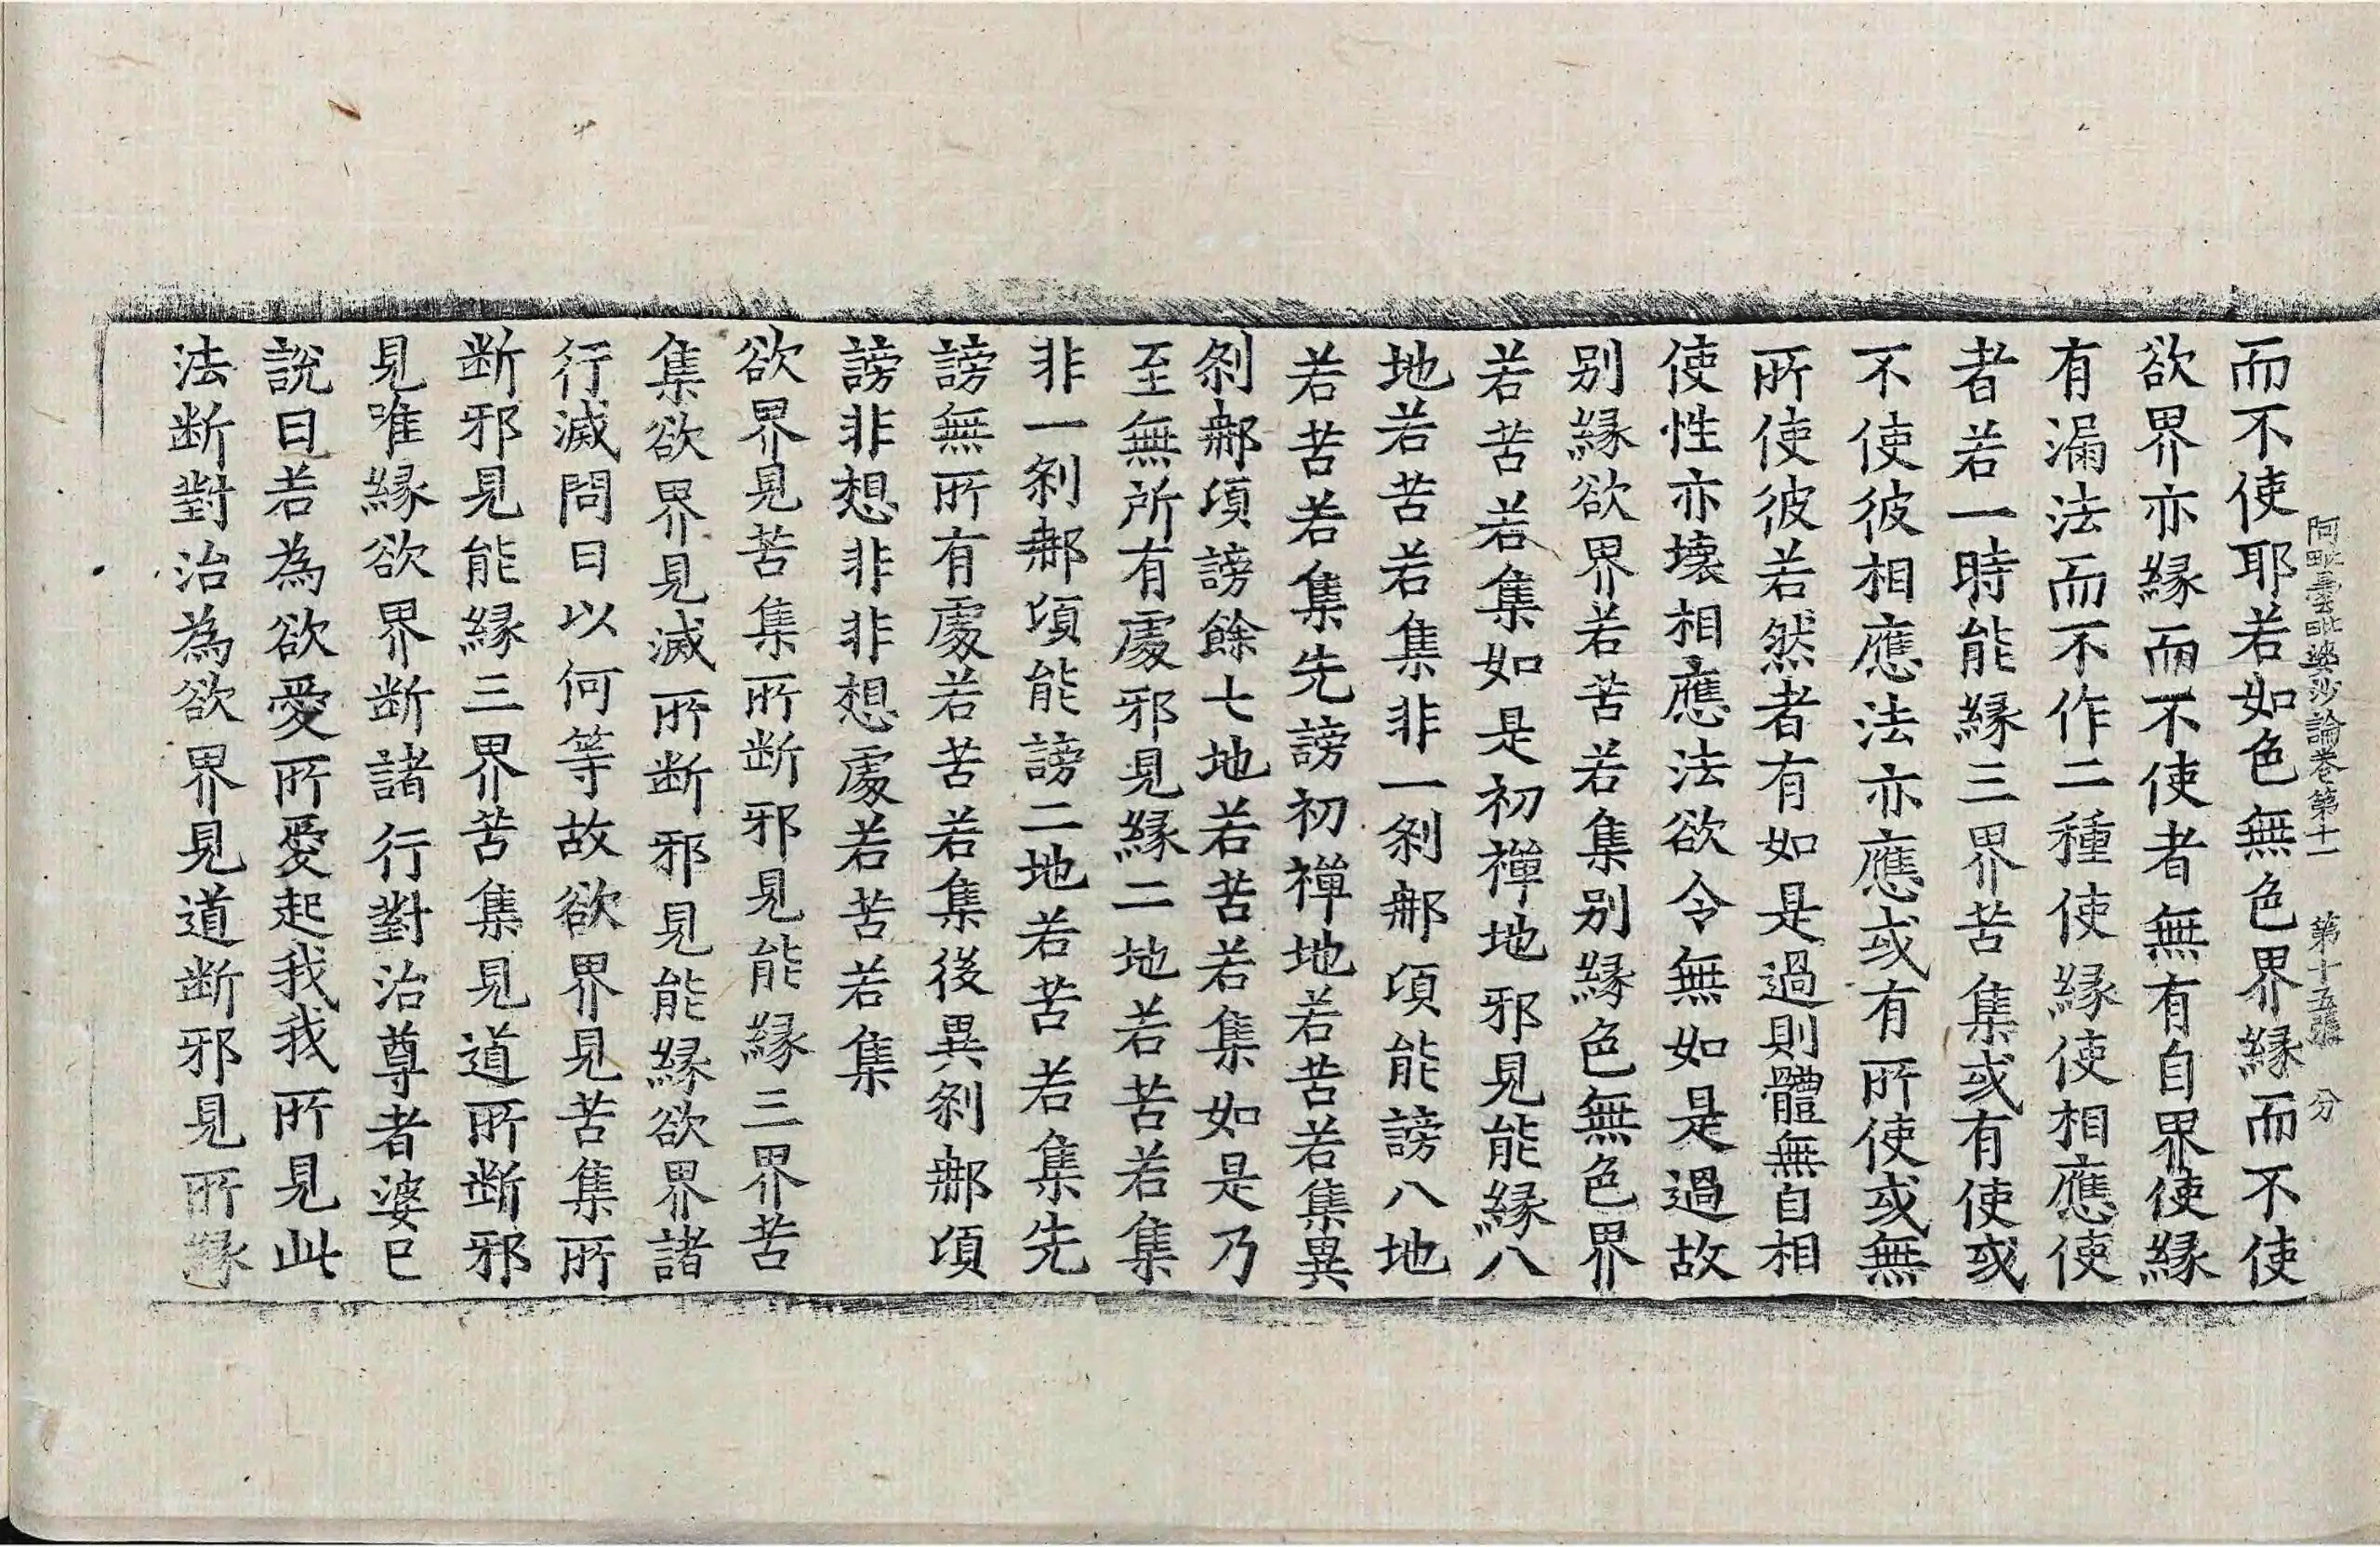 阿毗曇毗婆沙論卷第十一 第十五張 分
而不使耶若如色無色界緣而不使
欲界亦緣而不使者無有自界使緣
有漏法而不作二種使緣使相應使
者若一時能緣三界苦集或有使或
不使彼相應法亦應或有所使或無
所使彼若然者有如是過則體無自相
使性亦壞相應法欲令無如是過故
別緣欲界若苦若集別緣色無色界
若苦若集如是初禪地邪見能緣八
地若苦若集非一剎那頃能謗八地
若苦若集先謗初禪地若苦若集異
剎那頃謗餘七地若苦若集如是乃
至無所有處邪見緣二地若苦若集
非一剎那頃能謗二地若苦若集先
謗無所有處若苦若集後異剎那頃
謗非想非非想處若苦若集
欲界見苦集所斷邪見能緣三界苦
集欲界見滅所斷邪見能緣欲界諸
行滅問曰以何等故欲界見苦集所
斷邪見能緣三界苦集見道所斷邪
見唯緣欲界斷諸行對治尊者婆已
說曰若為欲愛所愛起我我所見此
法斷對治為欲界見道斷邪見所緣